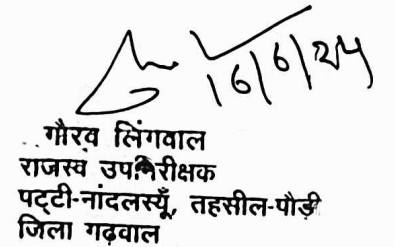 16/6/24
गौरव लिंगवाल
राजस्व उपनिरीक्षक
पट्टी-नांदलस्यूँ, तहसील-पौड़ी
जिला गढ़वाल